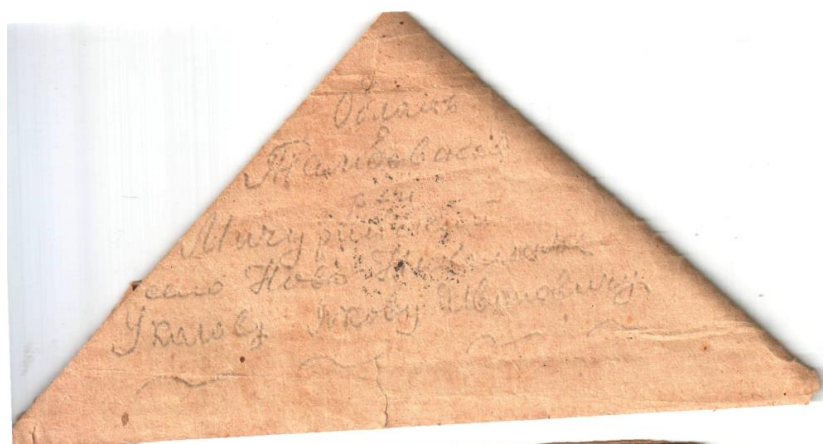 Область
Тамбовская
р-он
Мичуринский
село Ново
Якову Ивановичу